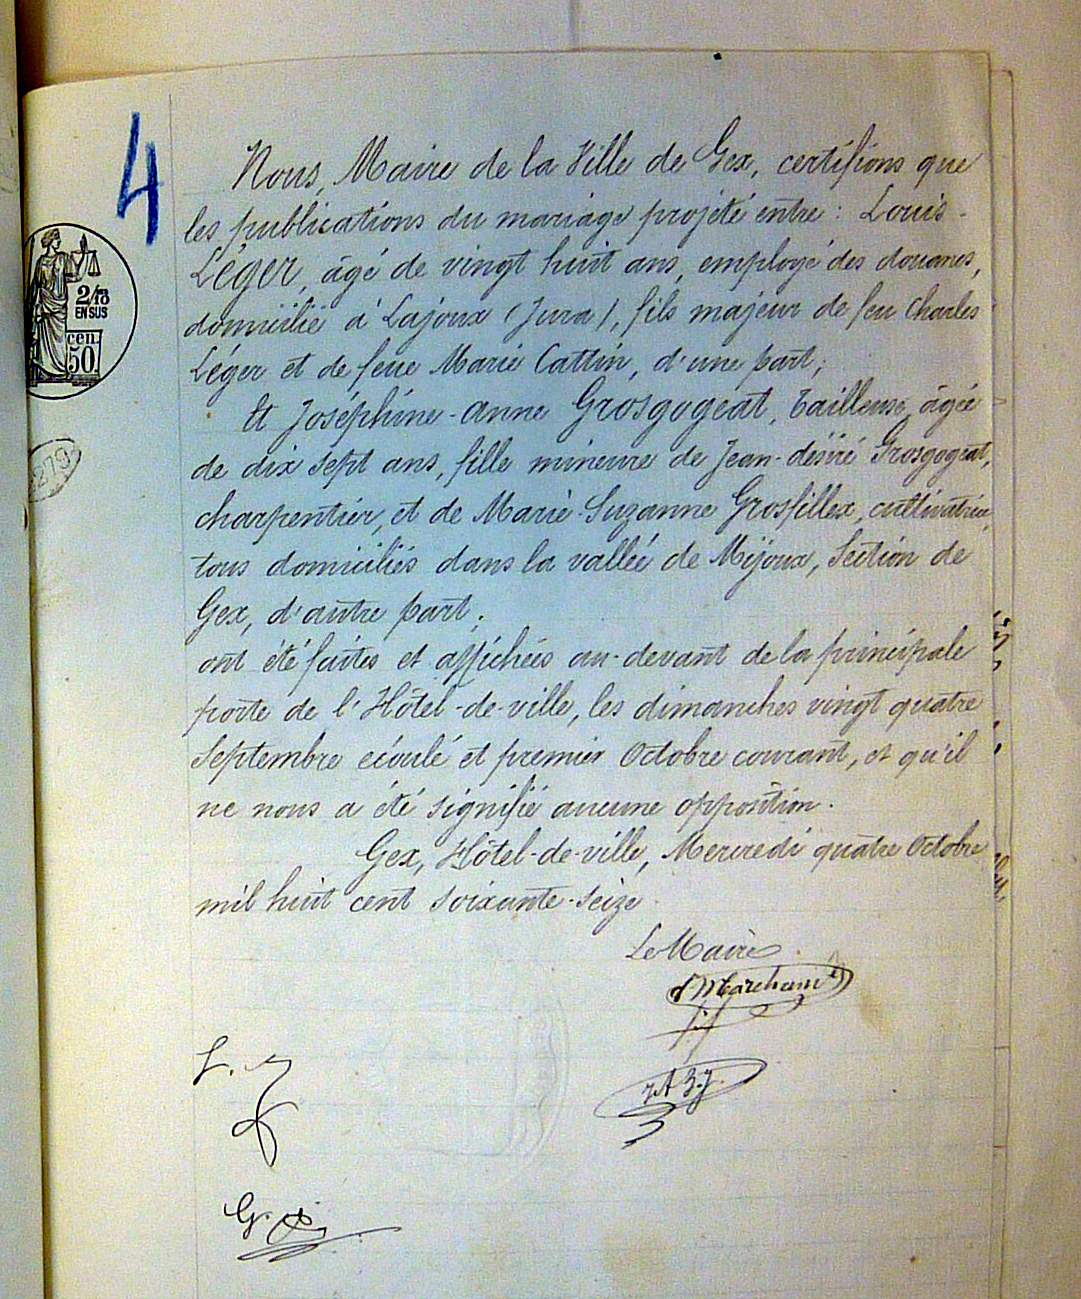 4
2/10
EN SUS
cen.
50.
279
Nous, Maire de la Ville de Gex, certifions que
les publications du mariage projeté entre : Louis-
Léger, âgé de vingt huit ans, employé des douanes,
domicilié à Lajoux (Jura), fils majeur de feu Charles
Léger et de feue Marie Cattin, d'une part ;
Et Joséphine-Anne Grosgogeat, tailleuse, âgée
de dix sept ans, fille mineure de Jean-désiré Grosgogeat,
charpentier, et de Marie-Suzanne Grosfillex, cultivatrice,
tous domiciliés dans la vallée de Mijoux, Section de
Gex, d'autre part ;
ont été faites et affichées au-devant de la principale
porte de l'Hôtel-de-ville, les dimanches vingt quatre
Septembre écoulé et premier Octobre courant, et qu'il
ne nous a été signifié aucune opposition.
Gex, Hôtel-de-ville, Mercredi quatre Octobre
mil huit cent soixante-seize.
Le Maire
Marchand
L.
G.